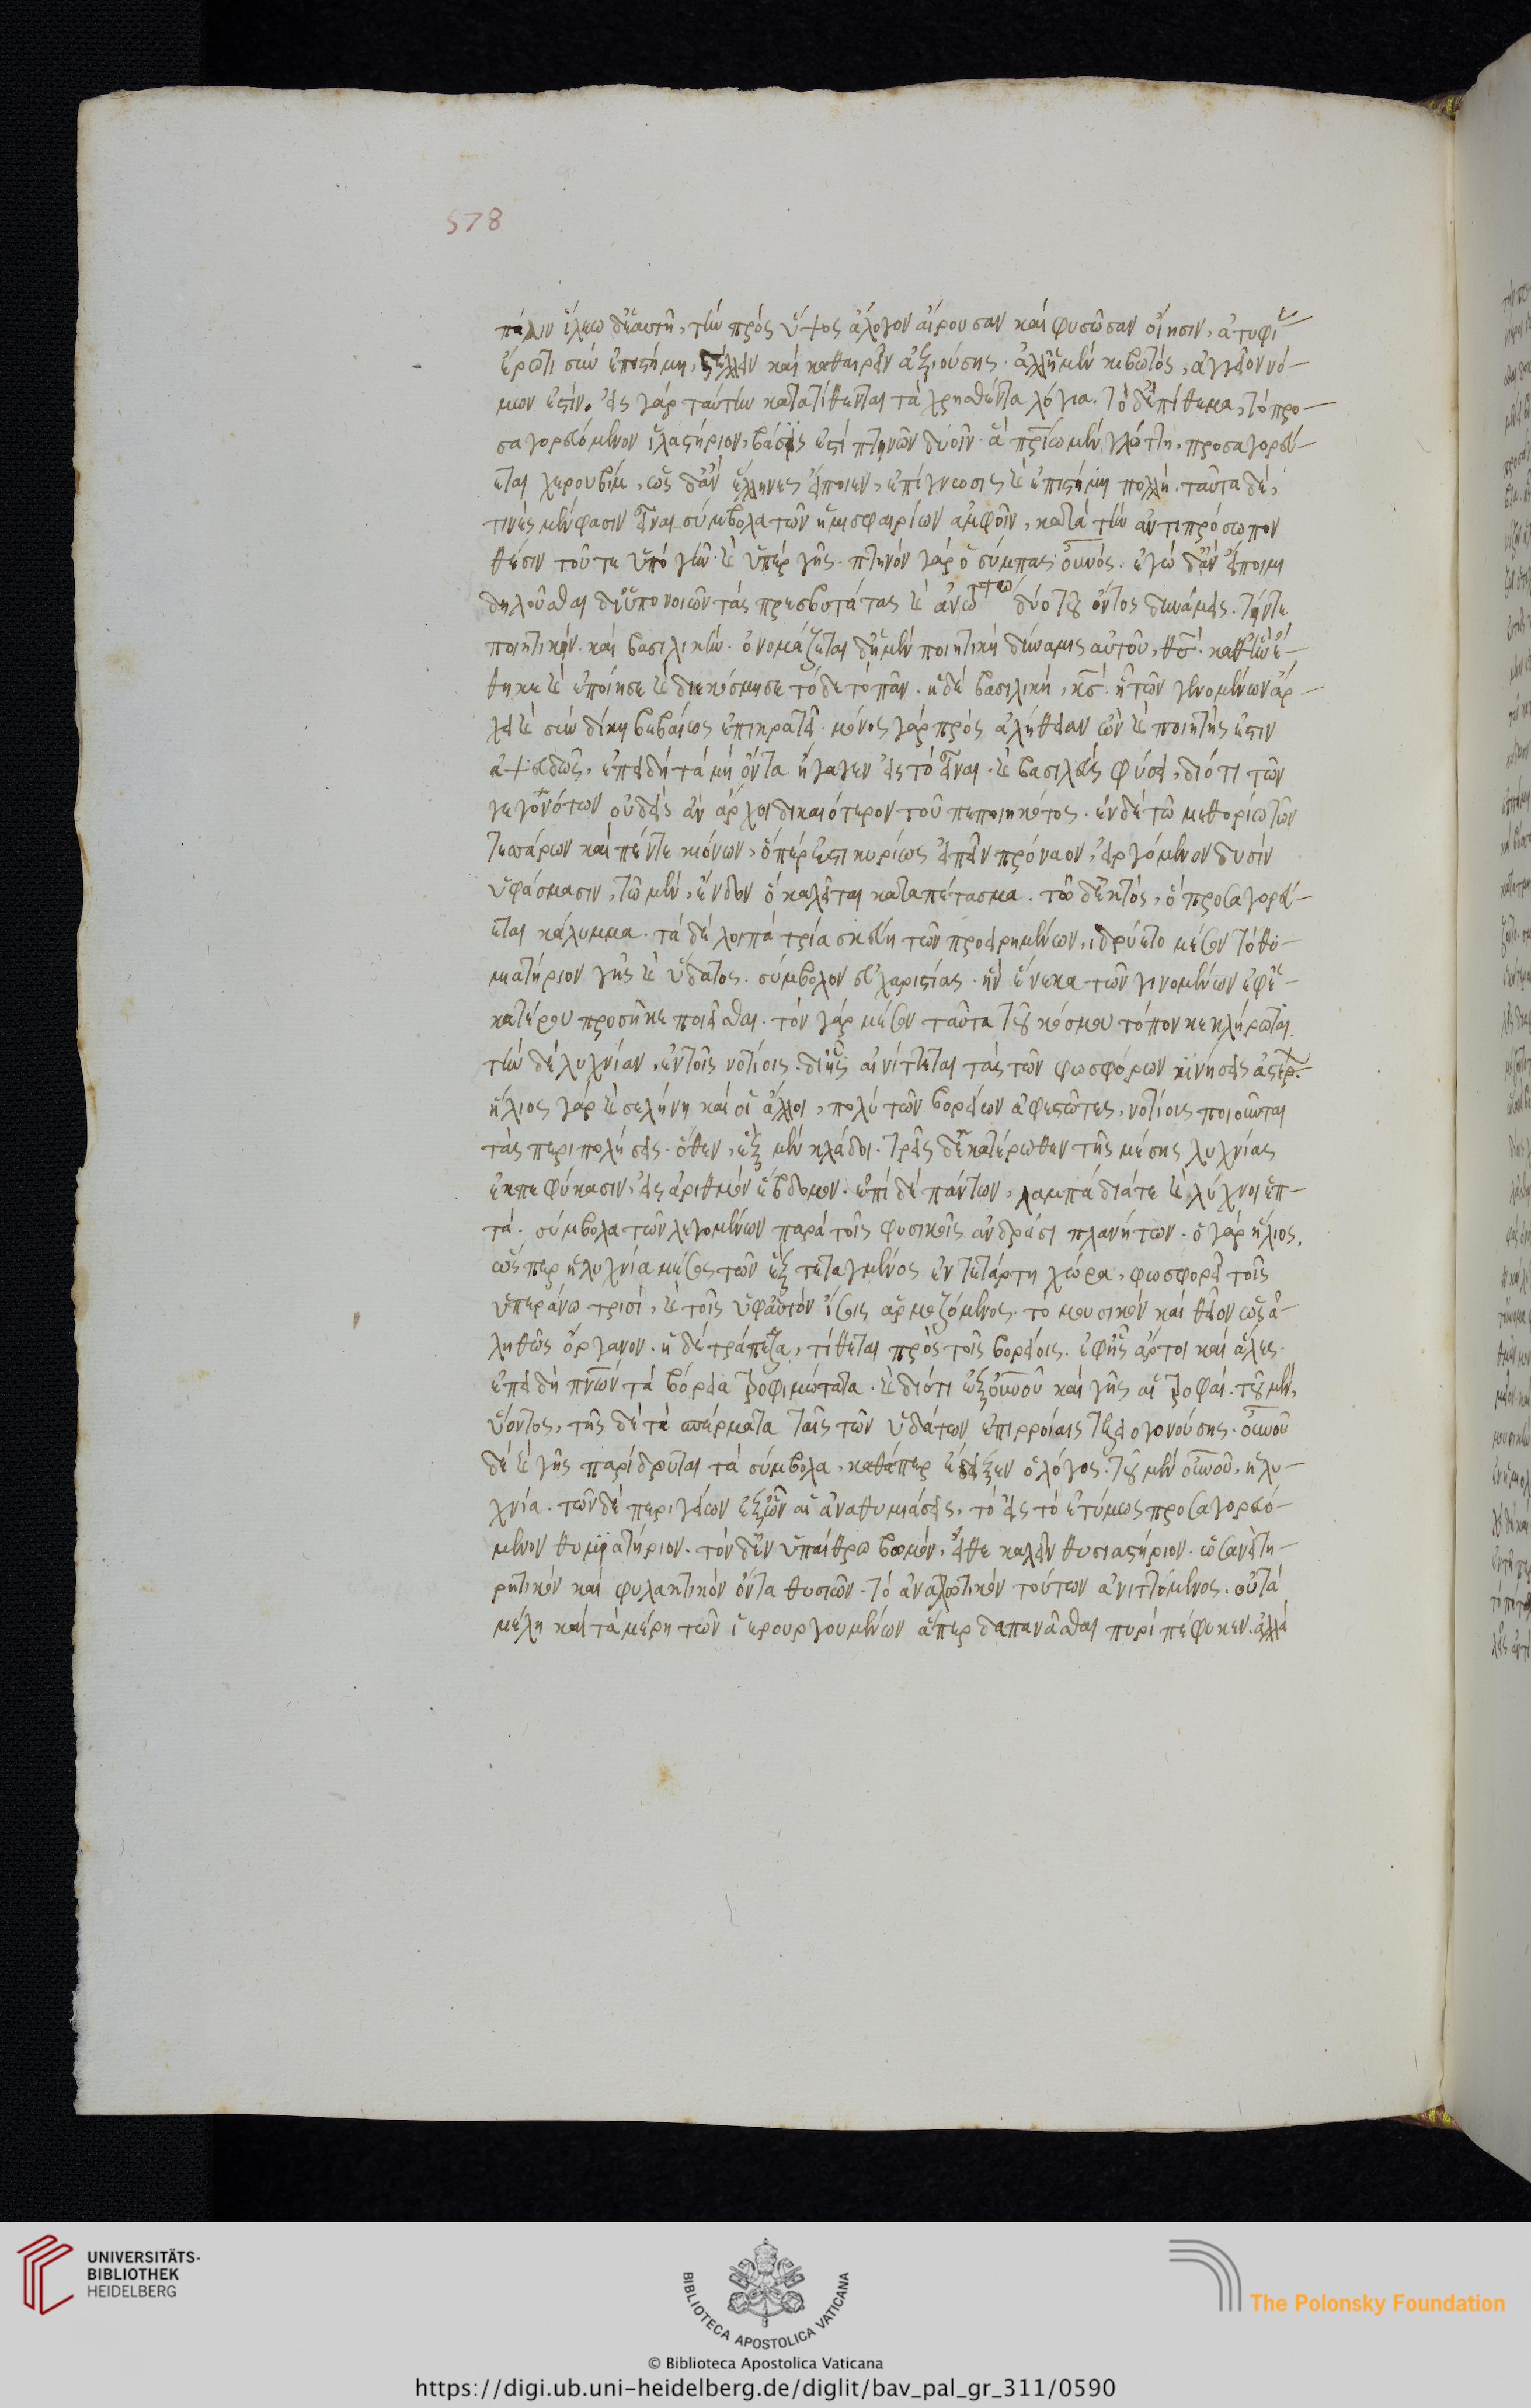 578
πάλιν ἵλεω δ' ἑαυτῇ, τὴν πρὸς ὕψος ἄλογον αἴρουσαν καὶ φυσῶσαν οἴησιν, ἀτυφί
ἔρωτι σὺν ἐπιστήμῃ, στέλλειν καὶ καθαιρεῖν ἀξιούσης. ἀλλ' ἡ μὲν κιβωτός, ἀγγεῖον νό-
μων ἐστίν. εἰς γὰρ ταύτην κατατίθενται τὰ χρησθέντα λόγια. τὸ δ' ἐπίθεμα, τὸ προ-
σαγορευόμενον ἱλαστήριον, βάσις ἐστὶ πτηνῶν δυοῖν. ἃ πρίω μὲν γλώττῃ, προσαγορεύ-
εται χερουβίμ, ὡς δ' ἂν ἕλληνες εἴποιεν, ἐπίγνωσις καὶ ἐπιστήμη πολλή. ταῦτα δέ,
τινὲς μέν φασιν εἶναι σύμβολα τῶν ἡμισφαιρίων ἀμφοῖν, κατὰ τὴν ἀντιπρόσωπον
θέσιν τοῦ τε ὑπὸ γῆν καὶ ὑπὲρ γῆς. πτηνὸν γὰρ ὁ σύμπας οὐνός. ἐγὼ δ' ἂν εἴποιμι
δηλοῦσθαι δι' ὑπονοιῶν τὰς πρεσβυτάτας καὶ ἀνωτάτω δύο τοῦ ὄντος δυνάμεις. τήν τε
ποιητικὴν. καὶ βασιλικήν. ὀνομάζεται δ' ἡ μὲν ποιητικὴ δύναμις αὐτοῦ, θς. καθ' ἣν ἔ-
θηκε καὶ ἐποίησε καὶ διεκόσμησε τόδε τὸ πᾶν. ἡ δὲ βασιλική, κς. ᾗ τῶν γενομένων ἄρ-
χει καὶ σὺν δίκῃ βεβαίως ἐπικρατεῖ. μόνος γὰρ πρὸς ἀλήθειαν ὢν καὶ ποιητής ἐστιν
ἀψευδῶς, ἐπειδὴ τὰ μὴ ὄντα ἤγαγεν εἰς τὸ εἶναι. καὶ βασιλεὺς φύσει, διότι τῶν
γεγονότων οὐδεὶς ἂν ἄρχοι δικαιότερον τοῦ πεποιηκότος. ἐν δὲ τῷ μεθορίῳ τῶν
τεσσάρων καὶ πέντε κιόνων, ὅπερ ἐστὶ κυρίως εἰπεῖν πρόναον, εἰργόμενον δυσὶν
ὑφάσμασιν, τῷ μὲν, ἔνδον ὃ καλεῖται καταπέτασμα. τῷ δ' ἐκτός, ὃ προσαγορεύ-
εται κάλυμμα. τὰ δὲ λοιπὰ τρία σκεύη τῶν προειρημένων, ἱδρύετο μέσον τὸ θυ-
μιατήριον γῆς καὶ ὕδατος. σύμβολον εὐχαριστίας. ἣν ἕνεκα τῶν γινομένων ἐφ' ἑ-
κατέρου προσῆκε ποιεῖσθαι. τὸν γὰρ μέσον ταῦτα τοῦ κόσμου τόπον κεκλήρωται.
τὴν δὲ λυχνίαν, ἐν τοῖς νοτίοις. δι' ἧς αἰνίττεται τὰς τῶν φωσφόρων κινήσεις ἀστέρ.
ἥλιος γὰρ καὶ σελήνη καὶ οἱ ἄλλοι, πολὺ τῶν βορείων ἀφεστῶτες, νοτίους ποιοῦνται
τὰς περιπολήσεις. ὅθεν, ἓξ μὲν κλάδοι. τρεῖς δ' ἑκατέρωθεν τῆς μέσης λυχνίας
ἐκπεφύκασιν, εἰς ἀριθμὸν ἕβδομον. ἐπὶ δὲ πάντων, λαμπάδιά τε καὶ λύχνοι ἑπ-
τά. σύμβολα τῶν λεγομένων παρὰ τοῖς φυσικοῖς ἀνδράσι πλανήτων. ὁ γὰρ ἥλιος,
ὥσπερ ἡ λυχνία μέσος τῶν ἓξ τεταγμένος ἐν τετάρτῃ χώρᾳ, φωσφορεῖ τοῖς
ὑπεράνω τρισί, καὶ τοῖς ὑφ' αὑτὸν ἴσοις ἁρμοζόμενος. τὸ μουσικὸν καὶ θεῖον ὡς ἀ-
ληθῶς ὄργανον. ἡ δὲ τράπεζα, τίθεται πρὸς τοῖς βορείοις. ἐφ' ἧς ἄρτοι καὶ ἅλες.
ἐπειδὴ πνων τὰ βόρεια τροφιμώτατα. καὶ διότι ἐξ οὐνοῦ καὶ γῆς αἱ τροφαί. τοῦ μὲν,
ὕοντος, τῆς δὲ τὰ σπέρματα ταῖς τῶν ὑδάτων ἐπιρροίαις τελεογονούσης. οὐνοῦ
δὲ καὶ γῆς παρίδρυται τὰ σύμβολα, καθάπερ ἔδειξεν ὁ λόγος. τοῦ μὲν οὐνοῦ, ἡ λυ-
χνία. τῶν δὲ περιγείων ἐξ ὧν αἱ ἀναθυμιάσεις, τὸ εἰς τὸ ἐτύμως προσαγορευό-
μενον θυμιατήριον. τὸν δ' ἐν ὑπαίθρῳ βωμόν, εἴθε καλεῖν θυσιαστήριον. ὡσανεὶ τη-
ρητικὸν καὶ φυλακτικὸν ὄντα θυσιῶν. τὸ ἀναλωτικὸν τούτων αἰνιττόμενος. οὐ τὰ
μέλη καὶ τὰ μέρη τῶν ἱερουργουμένων ἅπερ δαπανᾶσθαι πυρὶ πέφυκεν. ἀλλὰ
UNIVERSITÄTS-
BIBLIOTHEK
HEIDELBERG
BIBLIOTECA APOSTOLICA VATICANA
The Polonsky Foundation
© Biblioteca Apostolica Vaticana
https://digi.ub.uni-heidelberg.de/diglit/bav_pal_gr_311/0590